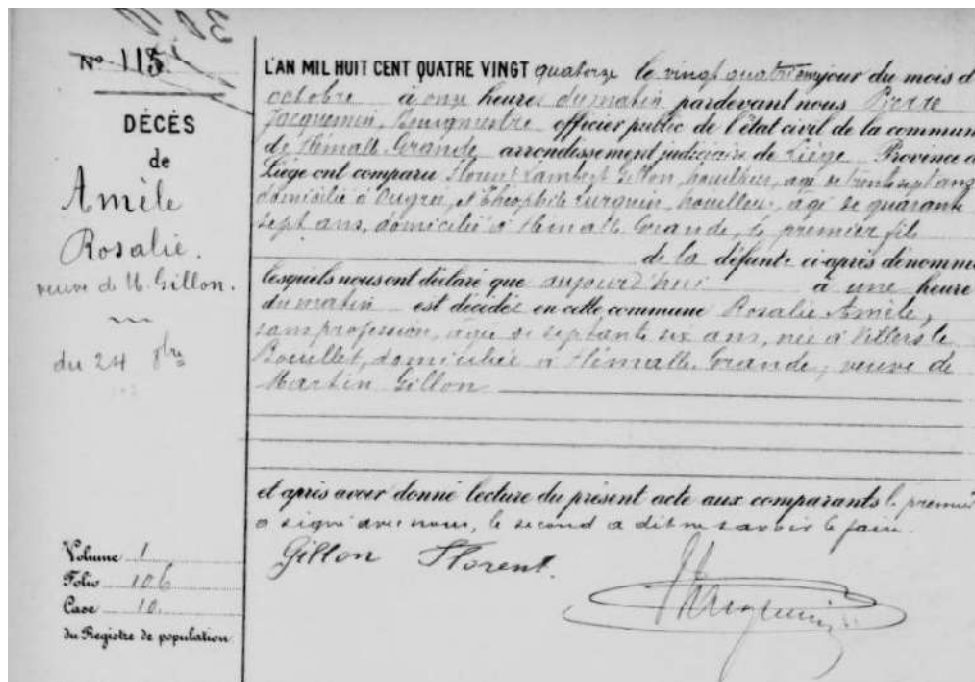 Nº 115.
DÉCÈS
de
Amèle
Rosalie.
veuve de M. Gillon.
du 24 8bre
Volume 1
Folio 106
Case 10.
du Registre de population.
L'AN MIL HUIT CENT QUATRE VINGT quatorze le vingt quatrième jour du mois d
octobre à onze heures du matin pardevant nous Pierre
Jacquemin, Bourgmestre officier public de l'état civil de la commun
de Hémalle Grande arrondissement judiciaire de Liège Province d
Liège ont comparu Florent Lambert Gillon, houilleur, âgé de trente sept ans
domicilié à Ougrée, et Théophile Lurquin, houilleur, âgé de quarante
sept ans, domicilié à Hémalle Grande, le premier fils
de la défunte ci-après dénommé
lesquels nous ont déclaré que aujourd'hui à une heure
du matin est décédée en cette commune Rosalie Amèle,
sans profession, âgée de septante six ans, née à Villers le
Bouillet, domiciliée à Hémalle Grande, veuve de
Martin Gillon
et après avoir donné lecture du présent acte aux comparants le premier
a signé avec nous, le second a dit ne savoir le faire.
Gillon Florent.
Jacquemin